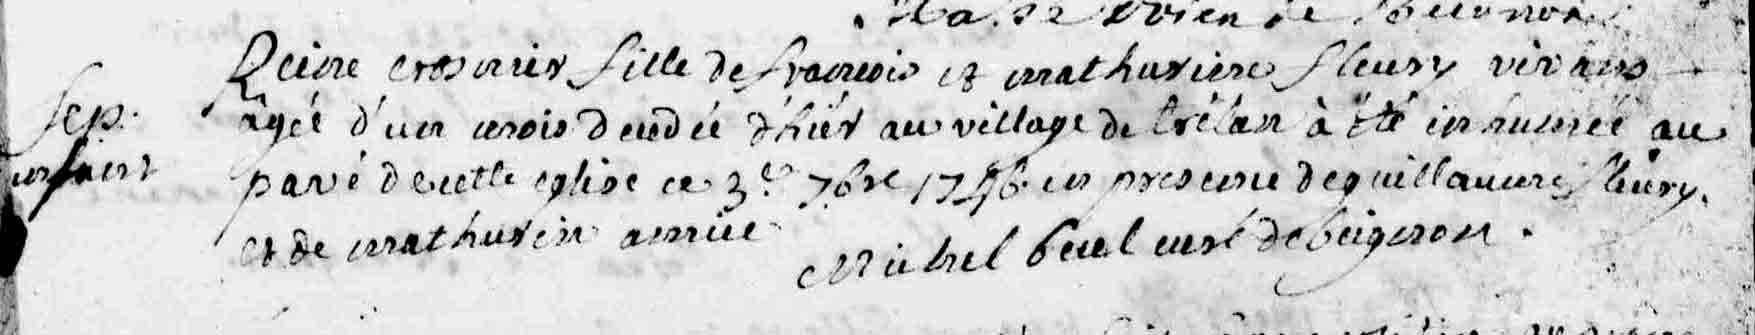 Reine crosnier fille de francois et mathurine fleury vivans
Sep.
âgée d'un mois decedée d'hier au village de trélan à été inhumée au
enfant
pavé de cette eglise ce 3.e 7.bre 1746 en presence de guillaume fleury.
et de mathurin
Michel curé de beignon.